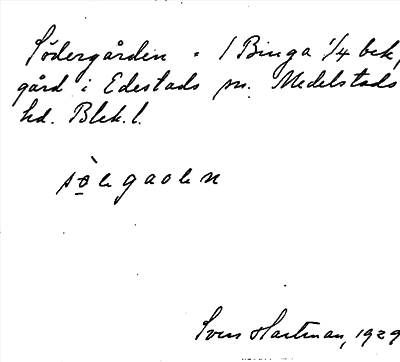 Södergården = 1 Binga 1/4 bek,
gård i Edestads sn. Medelstads
hd. Blek. l.
sølegaolen
Sven Hartman, 1929